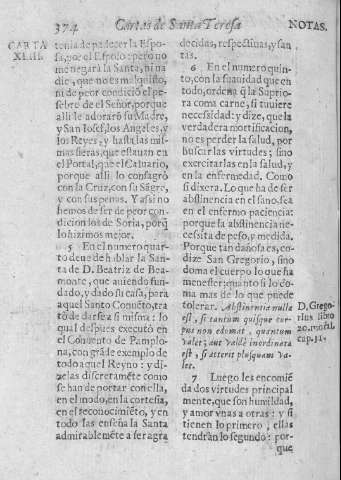 374 Cartas de Santa Teresa NOTAS.
CARTA
XLIII.
tenia de padecer la Espo-
sa, por el Esposo: pero no
me negarà la Santa, ni na
die, que no es mal quisto,
ni de peor condicio el pe-
sebre de el Señor, porque
alli le adoraró su Madre,
y San Iosef, los Angeles, y
los Reyes, y hasta las mis
mas fieras, que estauan en
el Portal; que el Caluario,
porque alli lo consagrò
con la Cruz, con su Sãgre,
y con sus penas. Y assi no
hemos de ser de peor con
dicion los de Soria, porq̃
lo hizimos mejor.
5 En el numero quar-
to deue de hablar la San-
ta de D. Beatriz de Bea-
monte, que auiendo fun-
dado, y dado su casa, para
aquel Santo Conuẽto, tra
tò de darse a si misma: lo
qual despues executò en
el Conuento de Pamplo-
na, con grãde exemplo de
todo aquel Reyno: y di-
zelas discretamẽte como
se han de portar con ella,
en el modo, en la cortesia,
en el reconocimiẽto, y en
todo las enseña la Santa
admirablemẽte a ser agra
decidas, respectiuas, y san
tas.
6 En el numero quin-
to, con la suauidad que en
todo, ordena q̃ la Suprio-
ra coma carne, si tuuiere
necessidad: y dize, que la
verdadera mortificacion,
no es perder la salud, por
buscar las virtudes; sino
exercitarlas en la salud, y
en la enfermedad. Como
si dixera. Lo que ha de ser
abstinencia en el sano, sea
en el enfermo paciencia:
porque la abstinencia ne-
cessita de peso, y medida.
Porque tan dañosa es, co-
dize San Gregorio, sino
doma el cuerpo lo que ha
menester; quanto si lo do
ma mas de lo que puede
tolerar. Abstinentia nulla
est, si tantum quisque cor-
pus non edomat, quantum
valet; aut valdè inordinata
est, si atterit plusquam va-
let.
D. Grego-
rius libro
20. moral.
cap. 31.
7 Luego les encomiẽ
da dos virtudes principal
mente, que son humildad,
y amor vnas a otras: y si
tienen lo primero, ellas
tendràn lo segundo: por-
que